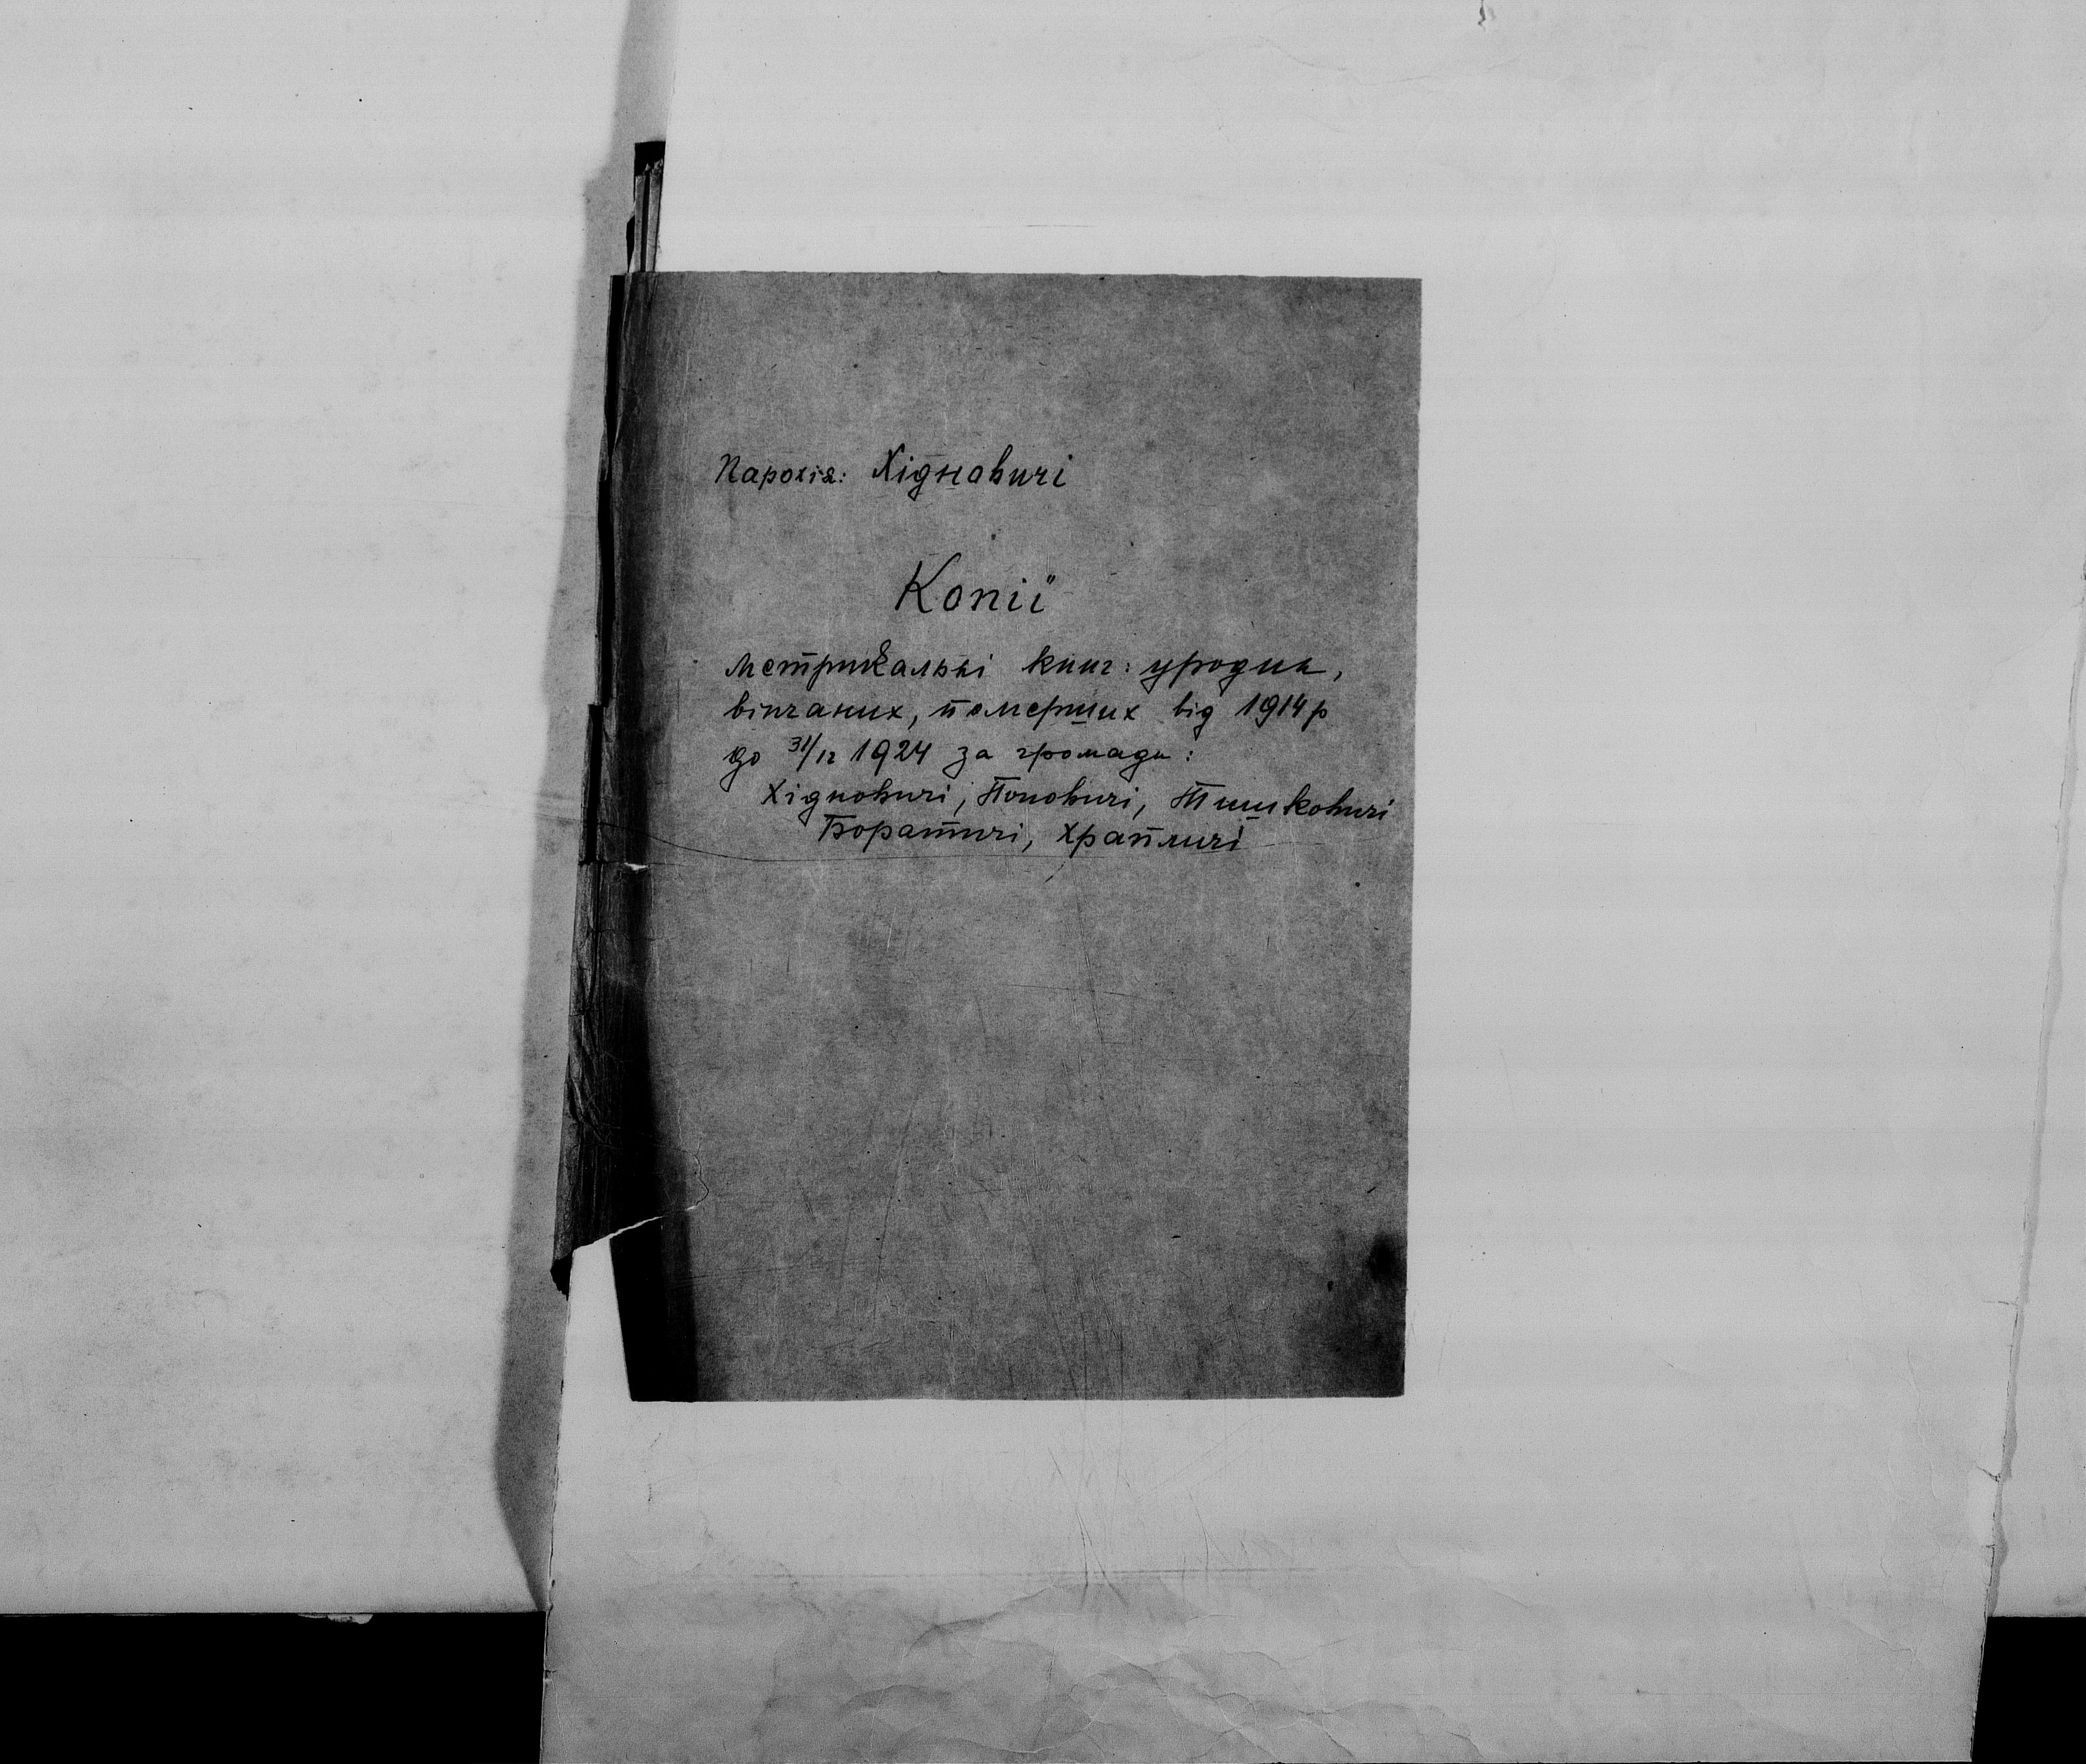 Парохія: Хідновичі
Копії
метрикальні книг: уродин,
вінчаних, померших від 1914 р
до 31/12 1924 за громади:
Хідновичі, Поповичі, Тишковичі
Боратичі, Храпличі